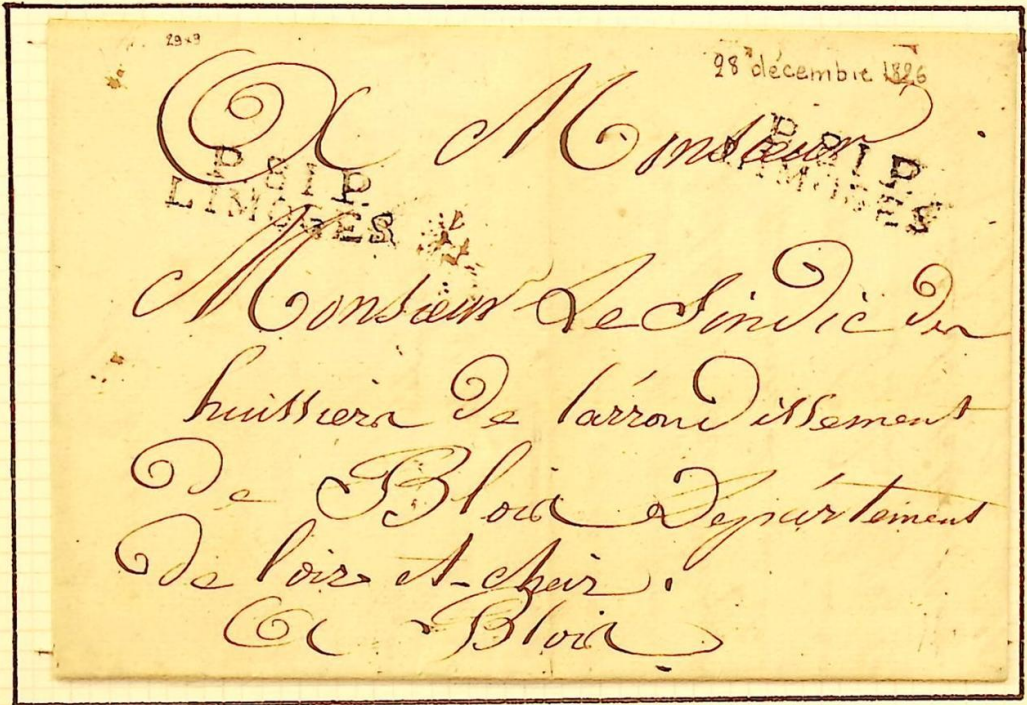 29x9
28 décembre 1826
A Monsieur
P.81.P.
LIMOGES
P.81.P.
LIMOGES
Monsieur Le Sindic des
huissiers de lárrondissement
de Blois Département
de loir et-cheir.
A Blois